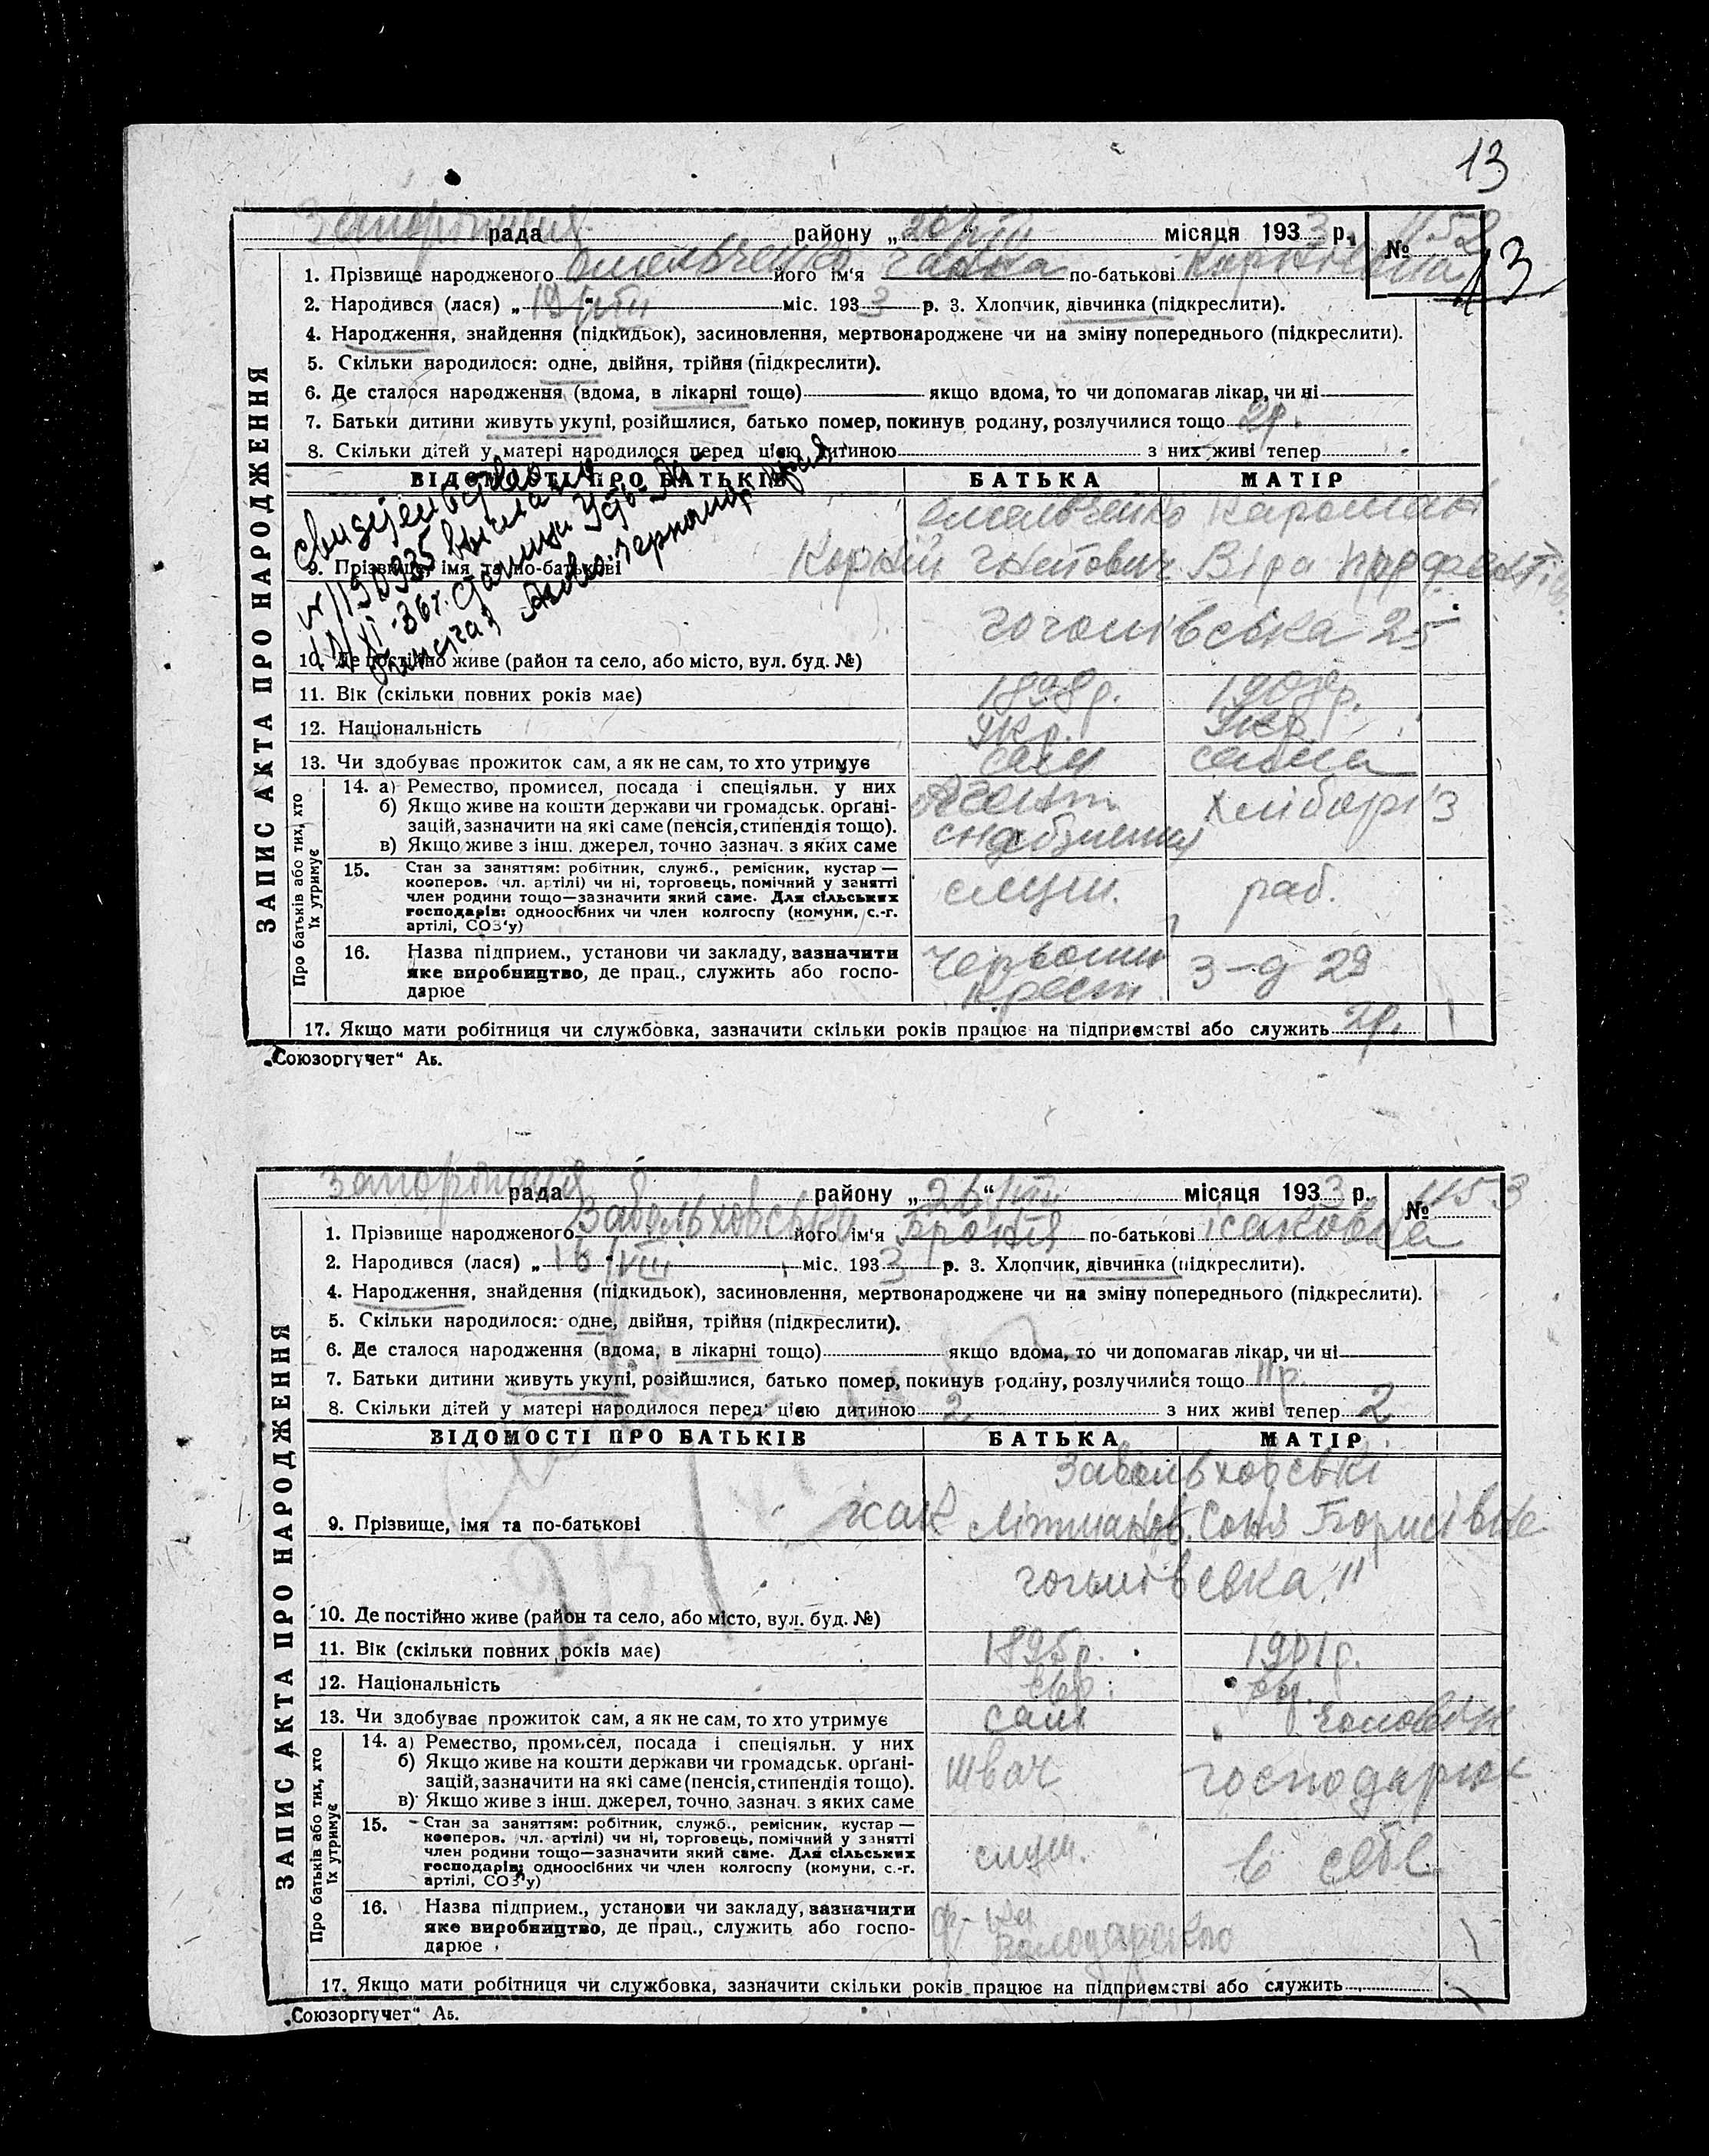 13
Запоріжжя рада району „26/VIII“ місяця 1933 р. № 1152
13
1. Прізвище народженого Омельченко його ім'я Галина по-батькові Корніївна
2. Народився (лася) „19/VIII міс. 1933 р. 3. Хлопчик, дівчинка (підкреслити).
4. Народження, знайдення (підкидьок), засиновлення, мертвонароджене чи на зміну попереднього (підкреслити).
5. Скільки народилося: одне, двійня, трійня (підкреслити).
6. Де сталося народження (вдома, в лікарні тощо) якщо вдома, то чи допомагав лікар, чи ні
7. Батьки дитини живуть укупі, розійшлися, батько помер, покинув родину, розлучилися тощо 2р.
8. Скільки дітей у матері народилося перед цією дитиною з них живі тепер
ЗАПИС АКТА ПРО НАРОДЖЕННЯ
ВІДОМОСТІ ПРО БАТЬКІВ БАТЬКА МАТІР
Свидетельство
№ 190935 выслан
11/XI-36г. станица Усть-
Азово-Черномор края
Омельченко
9. Прізвище, імя та по-батькові Корній Гнатович Віра
Гоголівська 25
10. Де постійно живе (район та село, або місто, вул. буд. №)
11. Вік (скільки повних років має) 1898р. 1908р.
12. Національність Укр. Укр.
13. Чи здобуває прожиток сам, а як не сам, то хто утримує сам сама
Про батьків або тих, хто їх утримує
14. а) Ремество, промисел, посада і спеціяльн. у них
б) Якщо живе на кошти держави чи громадськ. орґані-
зацій, зазначити на які саме (пенсія, стипендія тощо).
в) Якщо живе з інш. джерел, точно зазнач. з яких саме
Агент хліборіз
15. Стан за заняттям: робітник, служб., ремісник, кустар—
кооперов. (чл. артілі) чи ні, торговець, помічний у занятті
член родини тощо—зазначити який саме. Для сільських
господарів: одноосібних чи член колгоспу (комуни, с.-г.
артілі, СОЗ'у)
служ. раб.
16. Назва підприєм., установи чи закладу, зазначити
яке виробництво, де прац., служить або госпо-
дарюе
Крест з-д 29
17. Якщо мати робітниця чи службовка, зазначити скільки років працює на підприємстві або служить 2р.
„Союзоргучет“ Аь.
Запоріжжя рада району „26“/VIII місяця 1933 р. № 1153
1. Прізвище народженого Завольховська його ім'я Броня по-батькові Ісаковна
2. Народився (лася) „16/VIII міс. 1933 р. 3. Хлопчик, дівчинка (підкреслити).
4. Народження, знайдення (підкидьок), засиновлення, мертвонароджене чи на зміну попереднього (підкреслити).
5. Скільки народилося: одне, двійня, трійня (підкреслити).
6. Де сталося народження (вдома, в лікарні тощо) якщо вдома, то чи допомагав лікар, чи ні
7. Батьки дитини живуть укупі, розійшлися, батько помер, покинув родину, розлучилися тощо 11р.
8. Скільки дітей у матері народилося перед цією дитиною 2 з них живі тепер 2
ЗАПИС АКТА ПРО НАРОДЖЕННЯ
ВІДОМОСТІ ПРО БАТЬКІВ БАТЬКА МАТІР
Завольховські
9. Прізвище, імя та по-батькові Ісак Соня Борисівна
Гоголівська 11
10. Де постійно живе (район та село, або місто, вул. буд. №)
11. Вік (скільки повних років має) 1895р. 1901р.
12. Національність євр. євр.
13. Чи здобуває прожиток сам, а як не сам, то хто утримує сам чоловік
Про батьків або тих, хто їх утримує
14. а) Ремество, промисел, посада і спеціяльн. у них
б) Якщо живе на кошти держави чи громадськ. орґані-
зацій, зазначити на які саме (пенсія, стипендія тощо).
в) Якщо живе з інш. джерел, точно зазнач. з яких саме
швач господарює
15. Стан за заняттям: робітник, служб., ремісник, кустар—
кооперов. (чл. артілі) чи ні, торговець, помічний у занятті
член родини тощо—зазначити який саме. Для сільських
господарів: одноосібних чи член колгоспу (комуни, с.-г.
артілі, СОЗ'у)
служ. в себе
16. Назва підприєм., установи чи закладу, зазначити
яке виробництво, де прац., служить або госпо-
дарюе
ф-ка Володарсько
17. Якщо мати робітниця чи службовка, зазначити скільки років працює на підприємстві або служить
„Союзоргучет“ Аь.